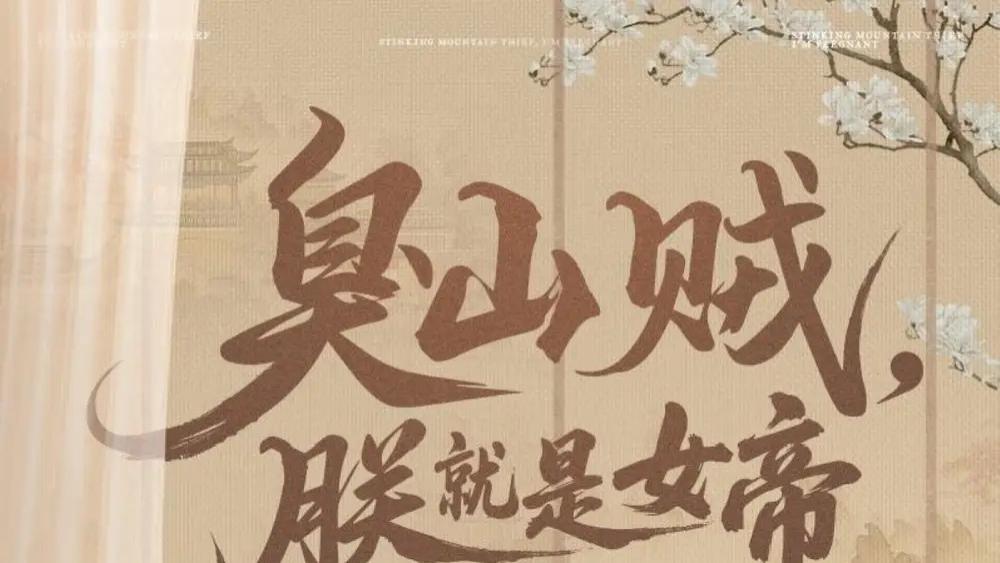 STINKING MOUNTAIN THIEF, I'M PREGNANT
STINKING MOUNTAIN THIEF
I'M PREGNANT
臭山贼，
朕就是女帝